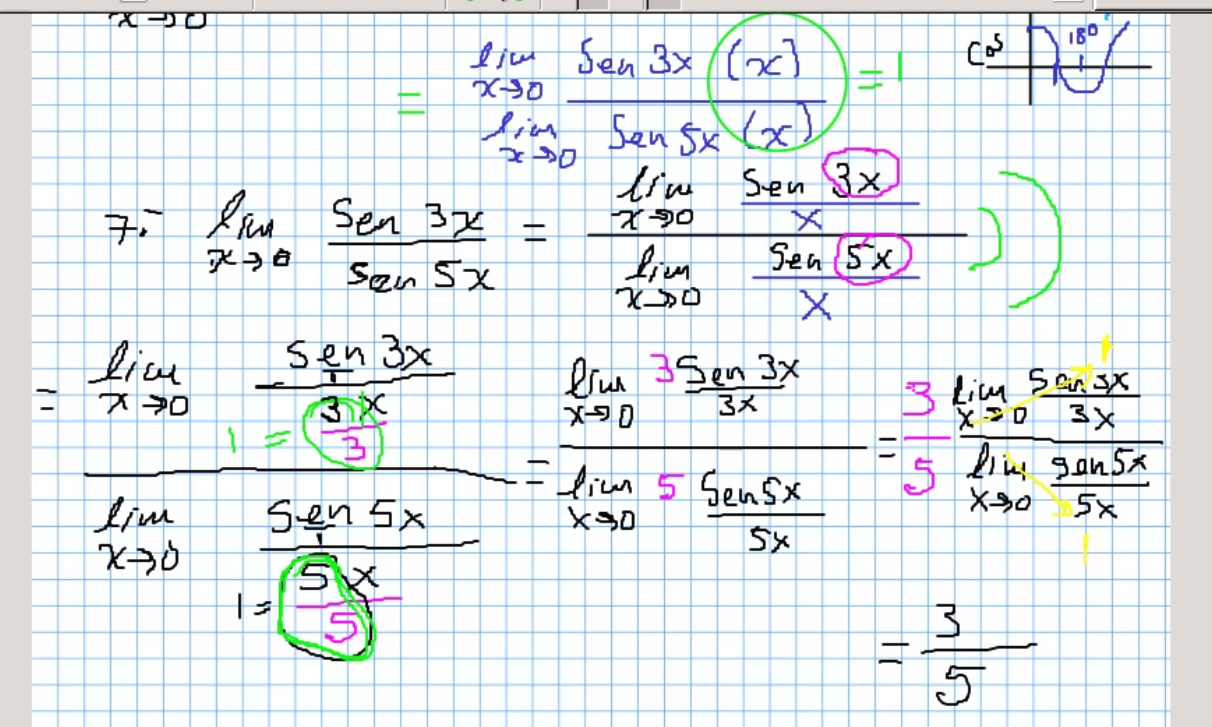 x→0
lim x→0 Sen 3x (x)
= ――― = 1
lim x→0 Sen 5x (x)
Cos 180°
7: lim x→0 Sen 3x / Sen 5x = lim x→0 Sen 3x / x / lim x→0 Sen 5x / x
= lim x→0 Sen 3x / 1 / 3x / 3 = lim x→0 3 Sen 3x / 3x = 3 lim x→0 Sen 3x / 3x 1
1 =
lim x→0 Sen 5x / 1 / 5x / 5 lim x→0 5 Sen 5x / 5x 5 lim x→0 Sen 5x / 5x 1
1 =
= 3 / 5